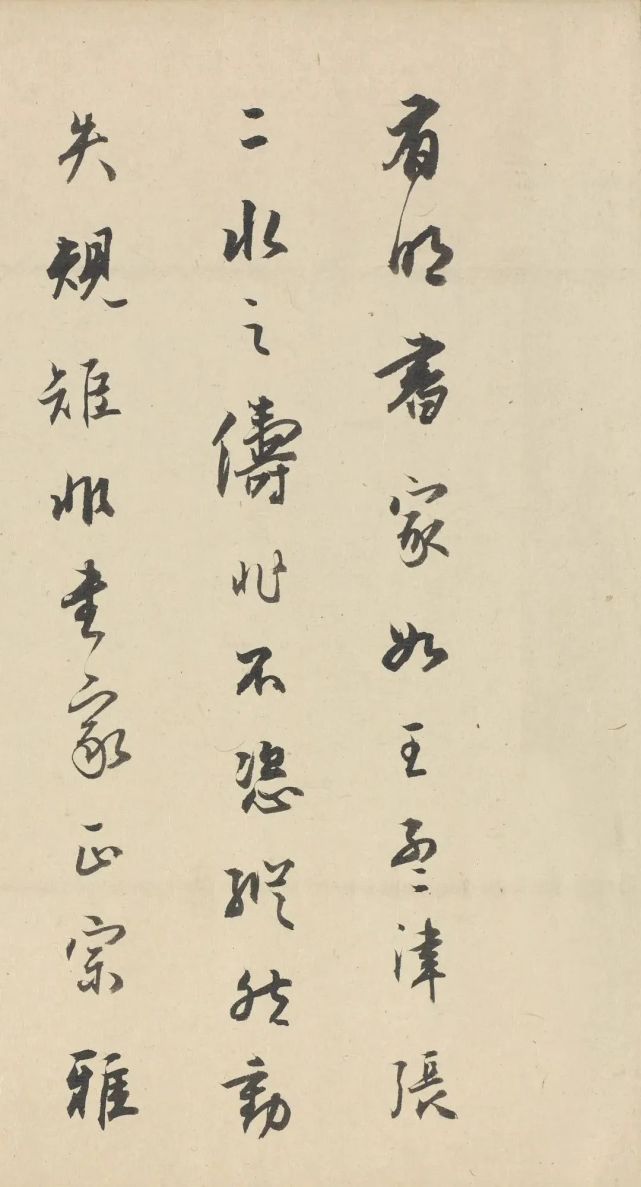 有明書家如王孟津張
二水之儔非不恣縱然動
失規矩非書家正宗雅